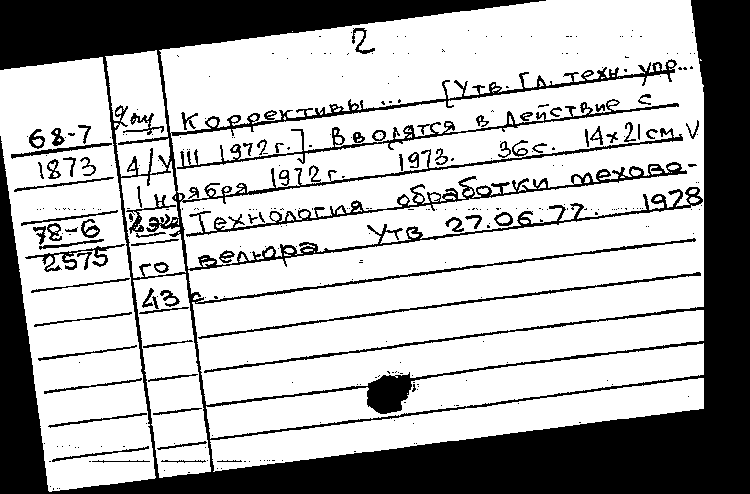 2
Коррективы... [Утв. Гл. техн. упр...
68-7
1873 4/VIII 1972 г.]. Вводятся в действие с
1 ноября 1972 г. 1973. 36 с. 14×21 см. V
78-6 Технология обработки мехово-
2575 го велюра. Утв. 27.06.77. 1978
43 с.